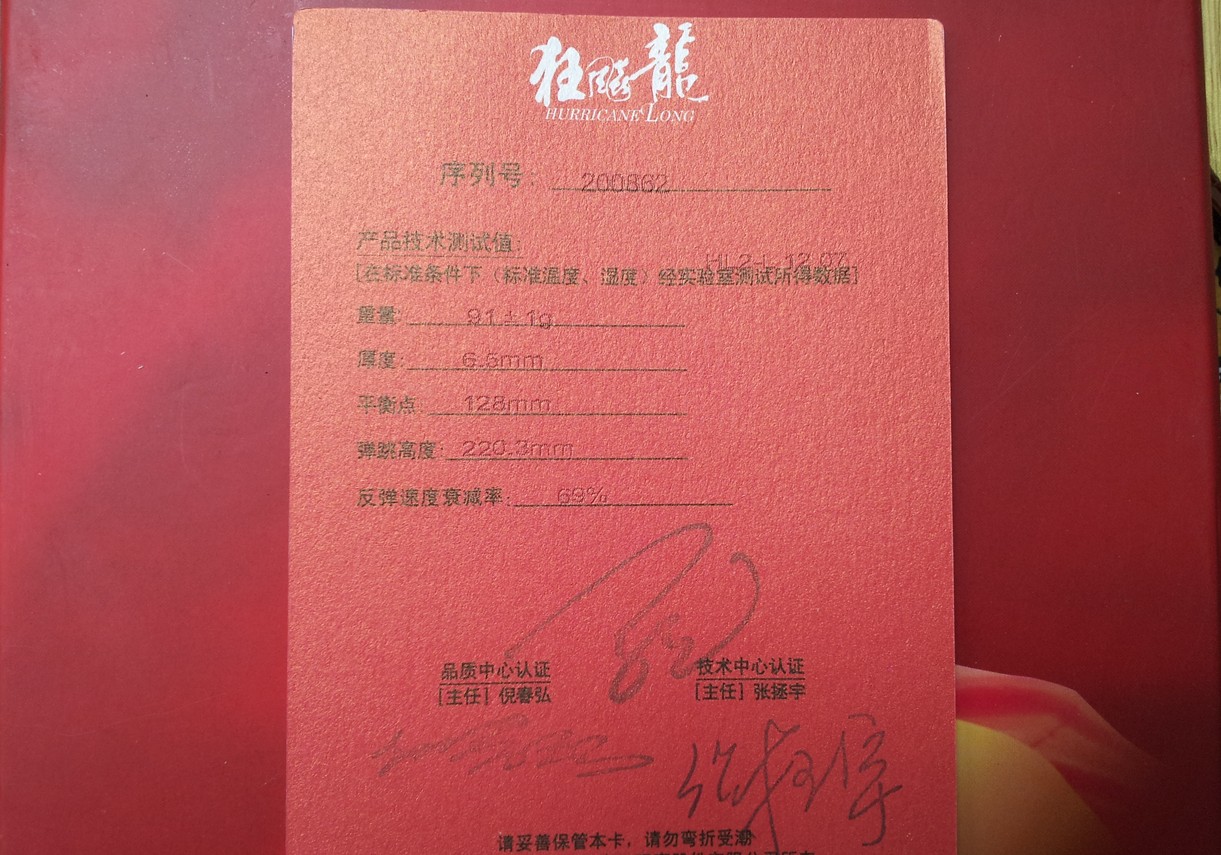 狂飚龍
HURRICANE LONG
序列号: 200862
产品技术测试值:
HL2-L 12.07
[在标准条件下(标准温度、湿度)经实验室测试所得数据]
重量: 91±1g
厚度: 6.5mm
平衡点: 128mm
弹跳高度: 220.3mm
反弹速度衰减率: 69%
品质中心认证
[主任] 倪春弘
技术中心认证
[主任] 张拯宇
请妥善保管本卡,请勿弯折受潮